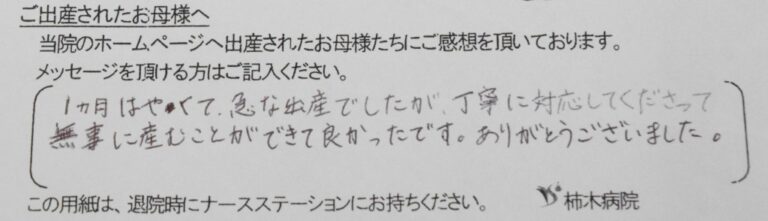 ご出産されたお母様へ
当院のホームページへ出産されたお母様たちにご感想を頂いております。
メッセージを頂ける方はご記入ください。
1ヵ月はやくて、急な出産でしたが、丁寧に対応してくださって
無事に産むことができて良かったです。ありがとうございました。
この用紙は、退院時にナースステーションにお持ちください。 柿木病院